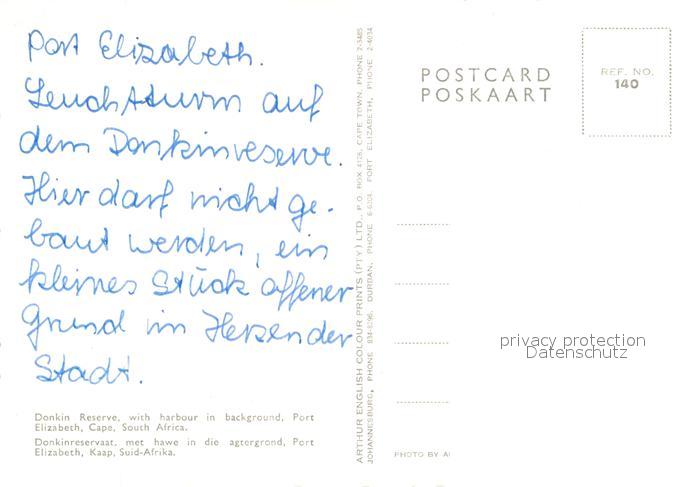 Port Elizabeth.
Leuchtturm auf
dem Donkinreserve.
Hier darf nicht ge-
baut werden, ein
kleines Stück offener
Grund im Herzen der
Stadt.
Donkin Reserve, with harbour in background, Port
Elizabeth, Cape, South Africa.
Donkinreservaat, met hawe in die agtergrond, Port
Elizabeth, Kaap, Suid-Afrika.
ARTHUR ENGLISH COLOUR PRINTS (PTY) LTD., P.O. BOX 4128, CAPE TOWN, PHONE 2-3485
JOHANNESBURG, PHONE 834-8296. DURBAN, PHONE 6-6304. PORT ELIZABETH, PHONE 2-4034
POSTCARD
POSKAART
REF. NO.
140
privacy protection
Datenschutz
PHOTO BY